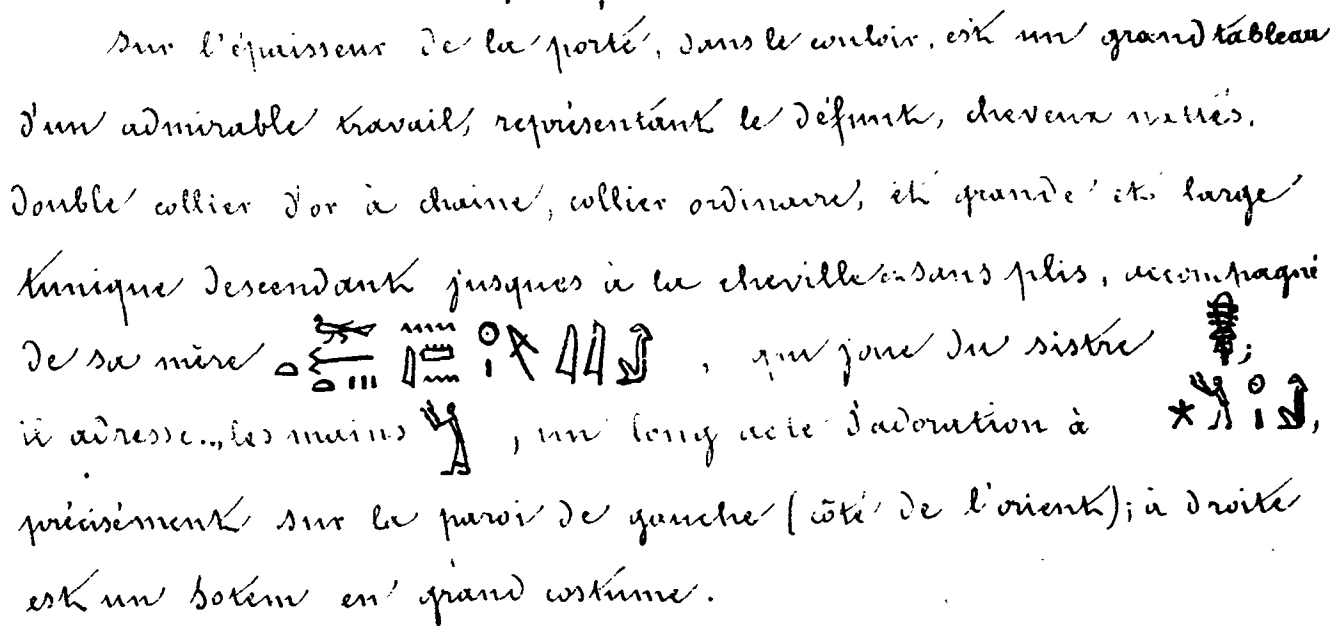 Sur l'épaisseur de la porte, dans le couloir, est un grand tableau
d'un admirable travail, représentant le défunt, cheveux nattés,
double collier d'or à chaine, collier ordinaire, et grande et large
tunique descendant jusques à la cheville sans plis, accompagné
de sa mère , qui joue du sistre ;
il adresse.., les mains , un long acte d'adoration à ,
précisément sur la paroi de gauche (côté de l'orient); à droite
est un Sotem en grand costume.